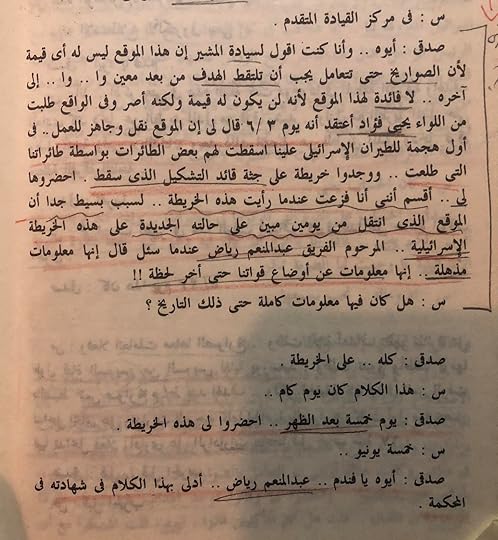 س : فى مركز القيادة المتقدم .
صدقى : أيوه .. وأنا كنت اقول لسيادة المشير إن هذا الموقع ليس له أى قيمة
لأن الصواريخ حتى تتعامل يجب أن تلتقط الهدف من بعد معين وا .. وا .. إلى
آخره .. لا فائدة لهذا الموقع لأنه لن يكون له قيمة ولكنه أصر وفى الواقع طلبت
من اللواء يحيى فؤاد أعتقد أنه يوم ٦/٣ قال لى إن الموقع نقل وجاهز للعمل .. فى
أول هجمة للطيران الإسرائيلى علينا اسقطت لهم بعض الطائرات بواسطة طائراتنا
التى طلعت .. ووجدوا خريطة على جثة قائد التشكيل الذى سقط . احضروها
لى .. أقسم أننى أنا فزعت عندما رأيت هذه الخريطة .. لسبب بسيط جدا أن
الموقع الذى انتقل من يومين مبين على حالته الجديدة على هذه الخريطة
الإسرائيلية .. المرحوم الفريق عبدالمنعم رياض عندما سئل قال إنها معلومات
مذهلة .. إنها معلومات عن أوضاع قواتنا حتى أخر لحظة !!
س : هل كان فيها معلومات كاملة حتى ذلك التاريخ ؟
صدقى : كله .. على الخريطة .
س : هذا الكلام كان يوم كام ..
صدقى : يوم خمسة بعد الظهر .. احضروا لى هذه الخريطة .
س : خمسة يونيو ..
صدقى : أيوه يا فندم .. عبدالمنعم رياض .. أدلى بهذا الكلام فى شهادته فى
المحكمة .